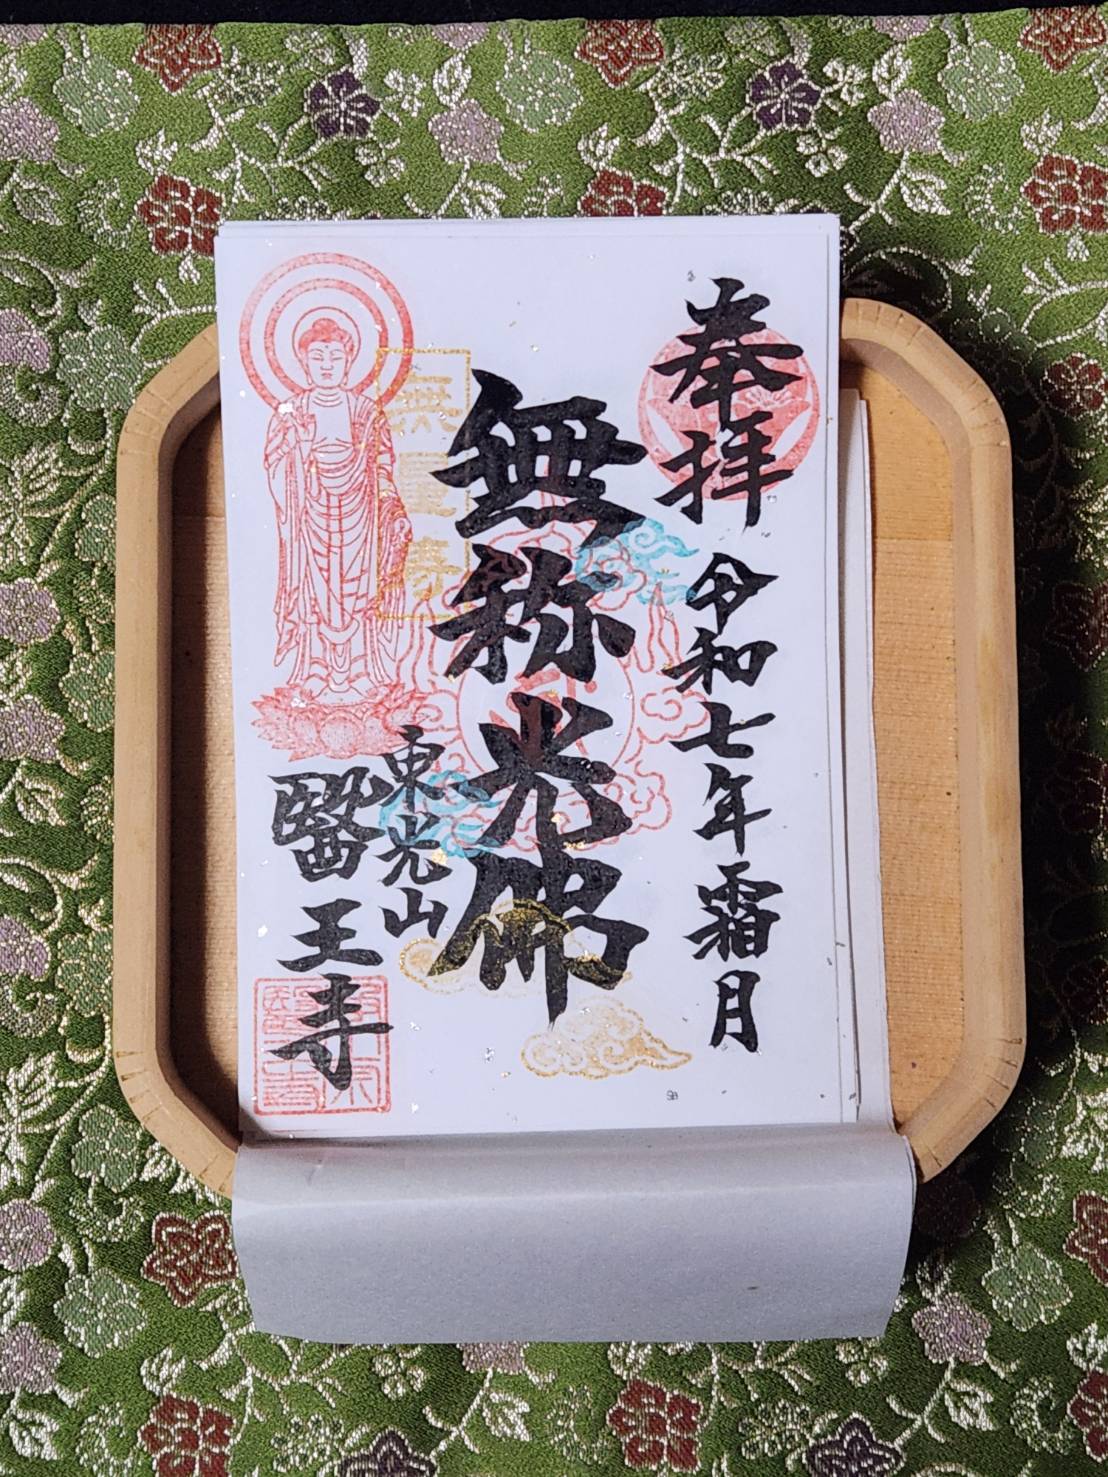 奉拝
令和七年霜月
無称光佛
無量寿
東光山
醫王寺